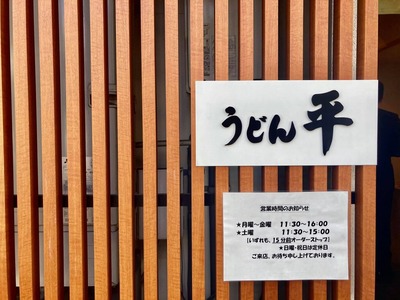 うどん 平
営業時間のお知らせ
★月曜～金曜 11:30～16:00
★土曜 11:30～15:00
[いずれも、15分前オーダーストップ]
★日曜・祝日は定休日
ご来店、お待ち申し上げております。